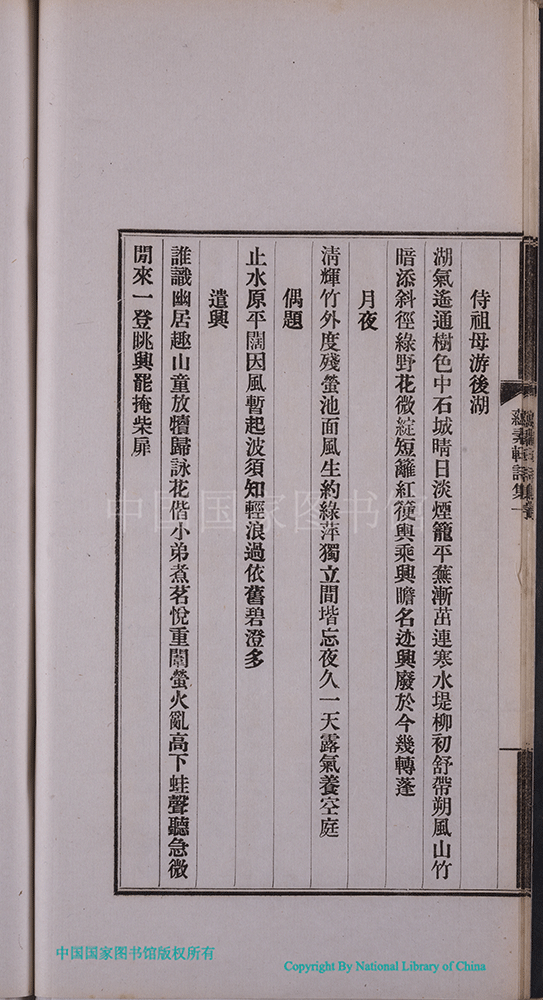 侍祖母游後湖
湖氣遙通樹色中石城晴日淡煙籠平蕪漸茁連寒水堤柳初舒帶朔風山竹
暗添斜徑綠野花微綻短籬紅籩輿乘興瞻名迹興廢於今幾轉蓬
月夜
清輝竹外度殘螢池面風生約綠萍獨立閒堦忘夜久一天露氣養空庭
偶題
止水原平闊因風暫起波須知輕浪過依舊碧澄多
遣興
誰識幽居趣山童放犢歸詠花偕小弟煮茗悅重闈螢火亂高下蛙聲聽急微
閒來一登眺興罷掩柴扉
中国国家图书馆
中国国家图书馆版权所有
Copyright By National Library of China